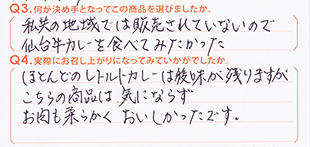 Q3.何が決め手となってこの商品を選びましたか。
私共の地域では販売されていないので
仙台牛カレーを食べてみたかった
Q4.実際にお召し上がりになってみていかがでしたか。
ほとんどのレトルトカレーは後味が残りますが
こちらの商品は気にならず
お肉も柔らかくおいしかったです。